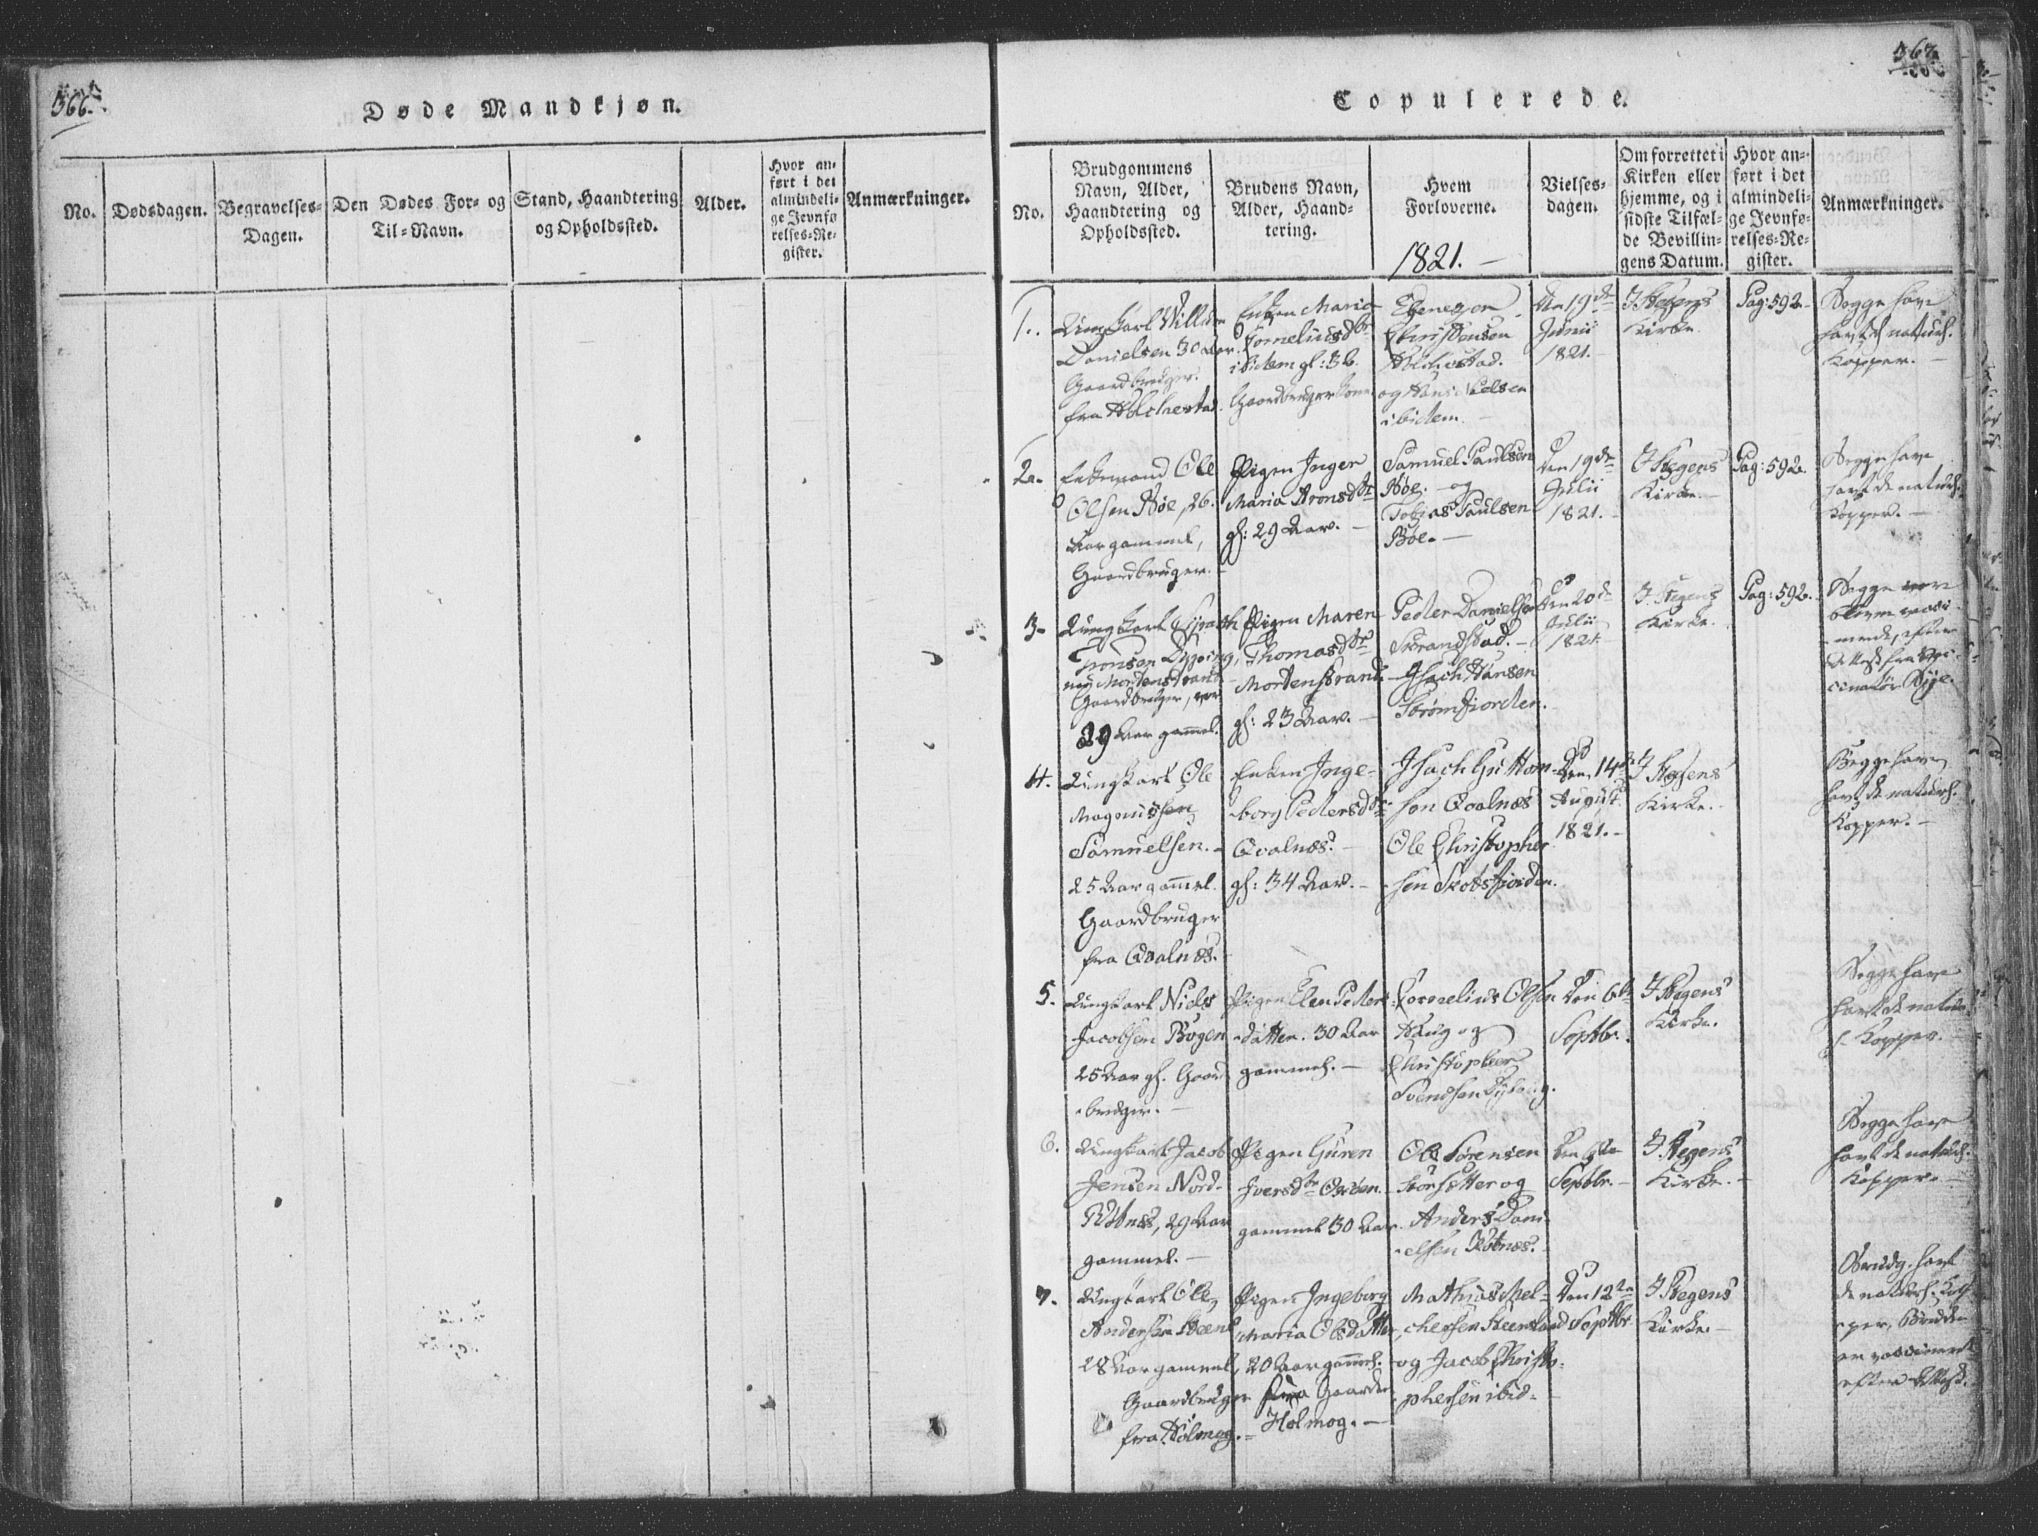 366.
Døde Mandkjøn.
No.
Dødsdagen.
Begravelses-
Dagen.
Den Dødes For- og
Til-Navn.
Stand, Haandtering
og Opholdssted.
Alder.
Hvor an-
ført i det
almindeli-
ge Jevnfø
relses-Re-
gister.
Anmærkninger.
367.
Copulerede.
No.
Brudgommens
Navn, Alder,
Haandtering og
Opholdssted.
Brudens Navn,
Alder, Haand-
tering.
Hvem
Forloverne.
1821.
Vielses-
dagen.
Om forrettet i
Kirken eller
hjemme, og i
sidste Tilfæl-
de Bevillin-
gens Datum.
Hvor an-
ført i det
almindeli-
ge Jevnfø-
relses-Re-
gister.
Anmærkninger.
1.
Ungkarl Willum
Danielsen 30 Aar.
Gaardbruger.
fra
Enken Maria
Corneliusdtr
ibidem gl: 36.
Gaardbrugerkone
Ebenezer
Christensen
og Hans Nielsen
ibidem.
Den 19de
Junii
1821.
I Stegens
Kirke.
Pag: 592.
Begge have
havt de naturl.
Kopper.
2.
Enkemand Ole
Olsen Bøe, 26.
Aar gammel,
Gaardbruger.
Pigen Inger
Maria Aronsdtr
gl: 29 Aar.
Samuel Paulsen
Bøe. og
Tobias Paulsen
Bøe.
Den 19de
Julii
1821.
I Stegens
Kirke.
Pag: 592.
Begge have
havt de naturl.
Kopper.
3.
Ungkarl
Mortenstrand
Gaardbruger,
29 Aar gammel.
Pigen Maren
Thomasdtr
Mortenstrand
gl: 23 Aar.
Peder Danielsen
Strandstad.
Isach Hansen
Strømfiorden.
Den 20de
Julii
1821.
I Stegens
Kirke.
Pag: 592.
Begge
efter
Attest fra
4.
Ungkarl Ole
Magnussen
Samuelsen.
25 Aar gammel.
Gaardbruger
fra Qvalnæs.
Enken Inge-
borg Pedersdtr
Qvalnæs.
gl: 34 Aar.
Isach Guttom-
sen Qvalnæs
Ole Christopher-
sen Skotsfiorden.
Den 14de
August
1821.
I Stegens
Kirke.
Begge have
havt de naturl.
Kopper.
5.
Ungkarl Niels
Jacobsen Bogen
25 Aar gl. Gaard-
bruger.
Pigen Elen Peders-
datter. 30 Aar
gammel.
Cornelius Olsen
Haug og
Christopher
Svendsen
Den 6te
Septbr.
I Stegens
Kirke.
Begge have
havt de natur-
l. Kopper.
6.
Ungkarl Jacob
Jensen Nord-
29 Aar
gammel.
Pigen Guren
Iversdtr
gammel 30 Aar
Ole Sørensen
Storsætter og
Anders Dani-
elsen
Den
Septbr.
I Stegens
Kirke.
Begge have
havt de naturl.
Kopper.
7.
Ungkarl Ole
Andersen
28 Aar gammel,
Gaardbruger
fra Holmog.
Pigen Ingeborg
Maria Olsdatter
20 Aar gammel.
fra Gaarden
Holmog.
Mathias Mel-
chersen
og Jacob Christo-
phersen ibid.
Den 12te
Septbr
I Stegens
Kirke.
Brudg. havt
de naturl. Kop-
per, Bruden
er vaccineret
efter Attest.